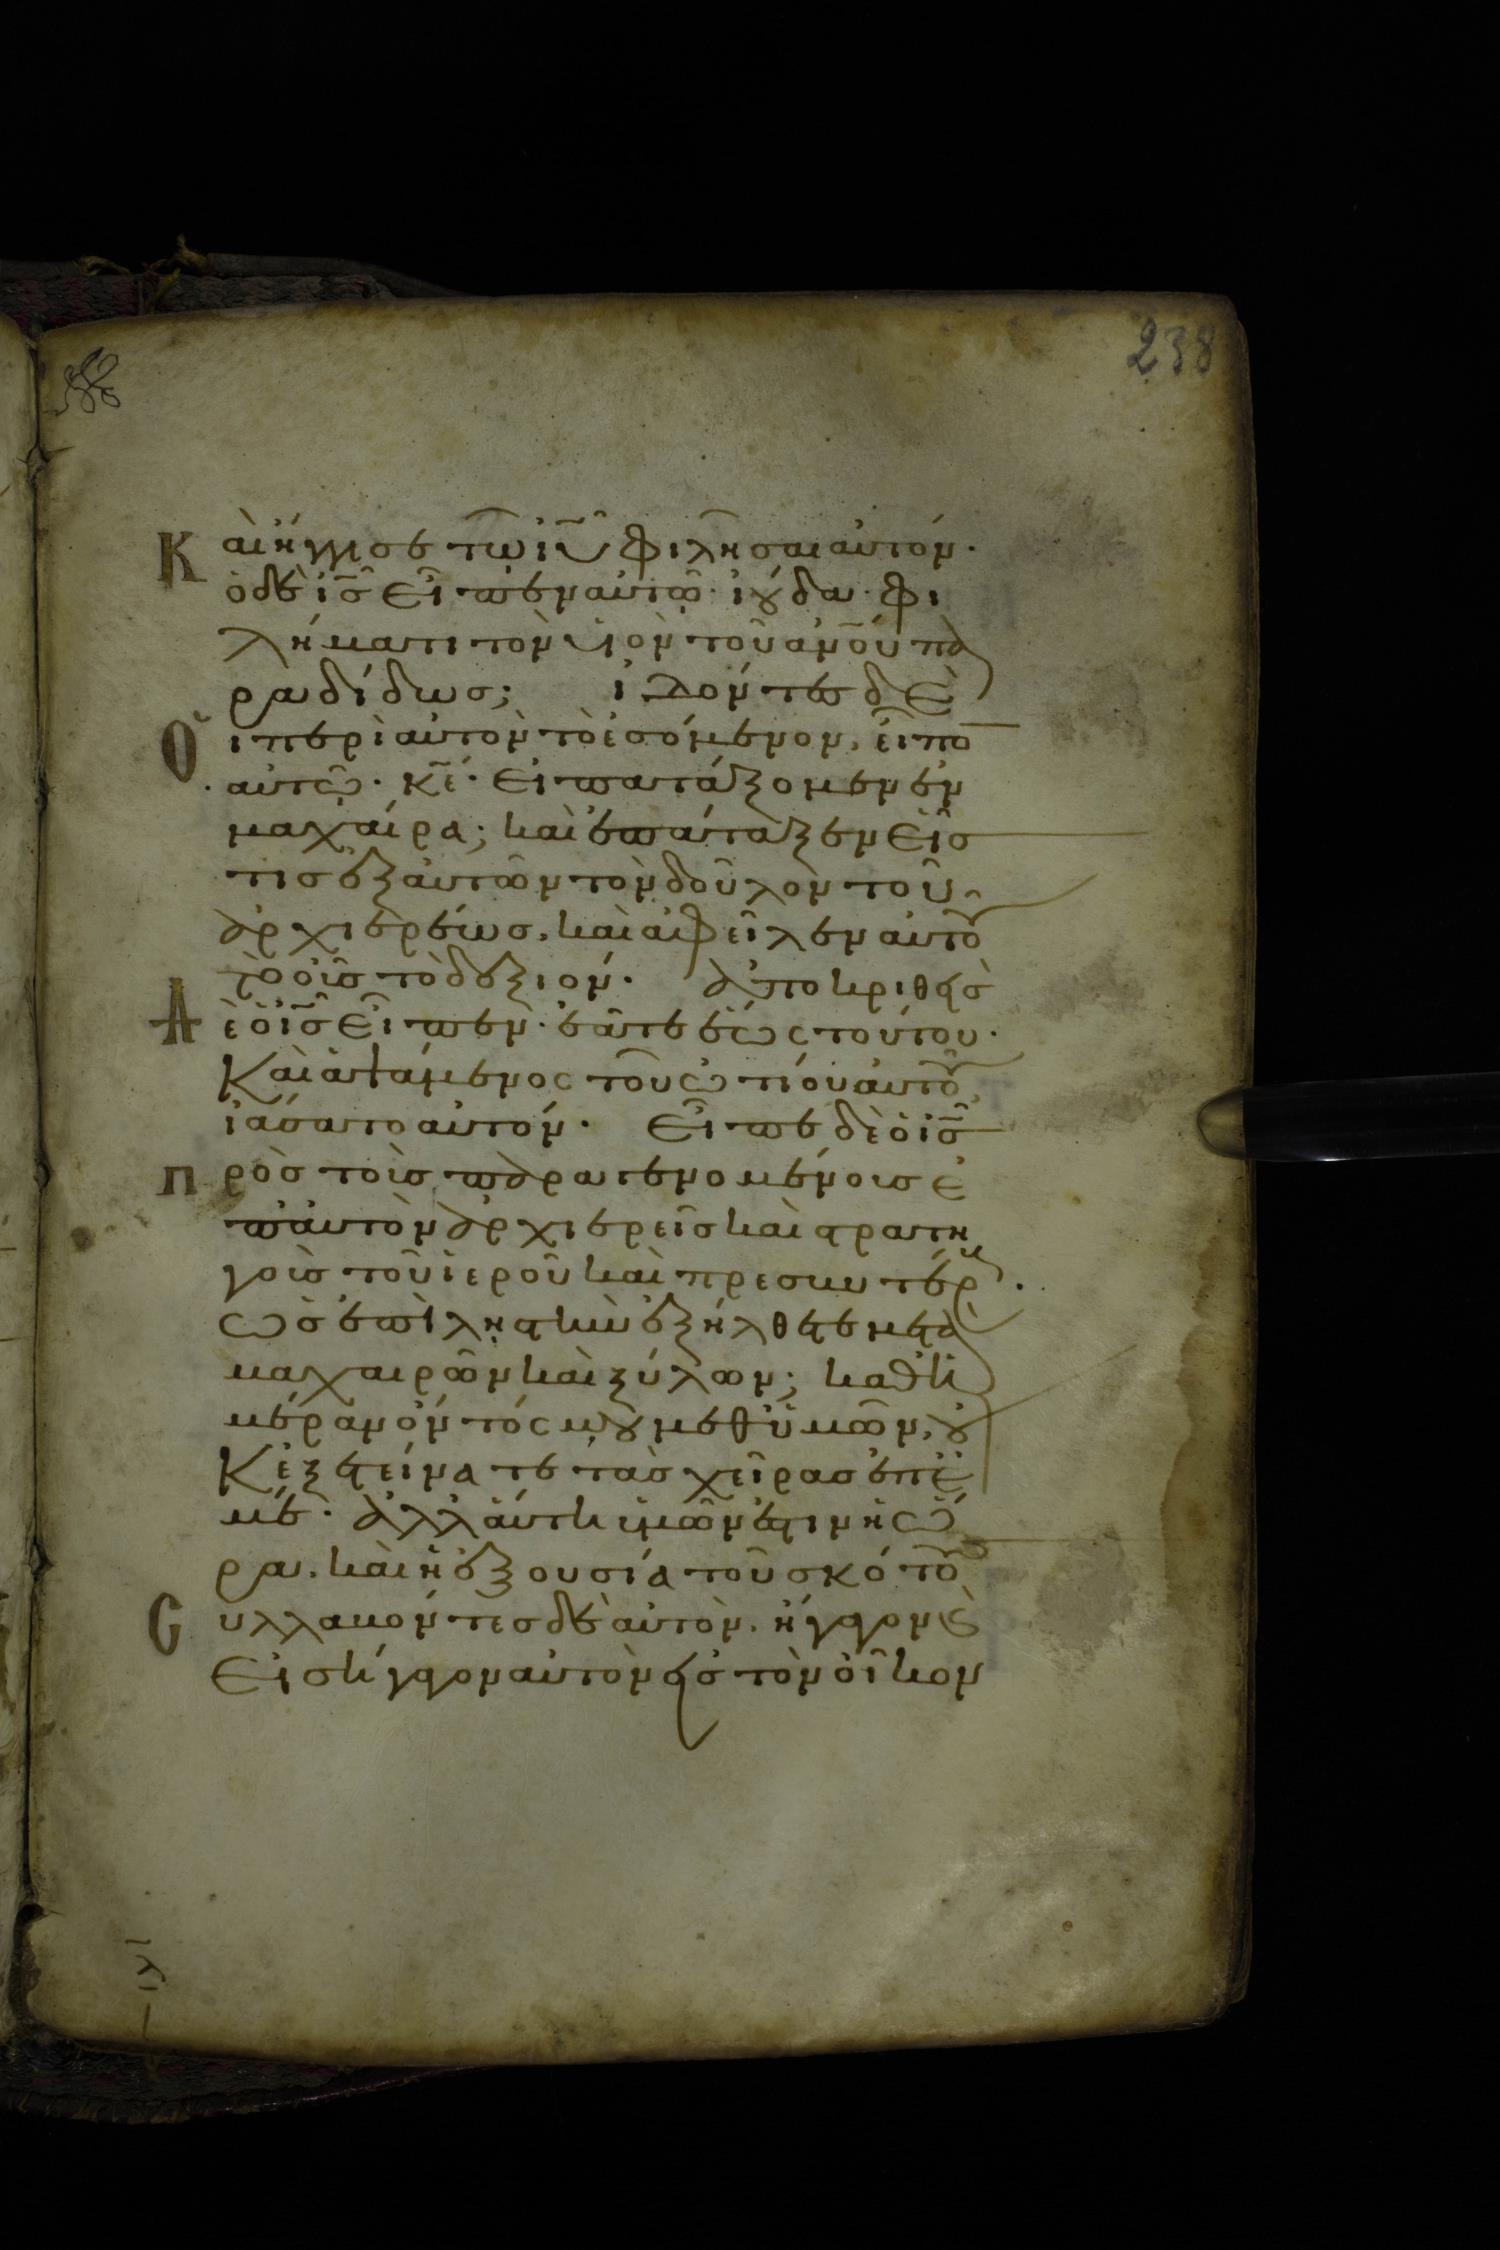 238
Καὶ ἤγγισε τῶ ἰῦ φιλῆσαι αὐτόν·
ὁ δὲ ἰς̅ εἶπεν αὐτῶ· ἰούδα· φι
λήματι τὸν υἱὸν τοῦ ἀν̅ου πα
ραδίδως; ἰδόντες δὲ
Οἱ περὶ αὐτὸν τὸ ἐσόμενον, εἶπο̅
αὐτῶ· κ̅ε· εἰ πατάξομεν ἐν
μαχαίρα; καὶ ἐπάταξεν εἷς
τις ἐξ αὐτῶν τὸν δοῦλον τοῦ
ἀρχιερέως, καὶ ἀφεῖλεν αὐτοῦ
τὸ οὖς τὸ δεξιόν· ἀποκριθεὶς
Δὲ ὁ ἰς̅ εἶπεν· ἐᾶτε ἕως τούτου·
Καὶ ἁψάμενος τοῦ ὠτίου αὐτοῦ,
ἰάσατο αὐτόν· εἶπε δὲ ὁ ἰς̅
Πρὸς τοὺς παραγενομένους ἐ
π' αὐτὸν ἀρχιερεῖς καὶ στρατη
γοὺς τοῦ ἱεροῦ καὶ πρεσβυτέρους·
ὡς ἐπὶ ληστὴν ἐξήλθετε μετὰ
μαχαιρῶν καὶ ξύλων; καθ' ἡ
μέραν ὄντός μου μεθ' ὑμῶν, οὐ
κ ἐξετείνατε τὰς χεῖρας ἐπ' ἐ
μέ· ἀλλ' αὕτη ὑμῶν ἐστιν ἡ ὥ
ρα, καὶ ἡ ἐξουσία τοῦ σκότους
Συλλαβόντες δὲ αὐτὸν, ἤγαγον καὶ
εἰσήγαγον αὐτὸν εἰς τὸν οἶκον